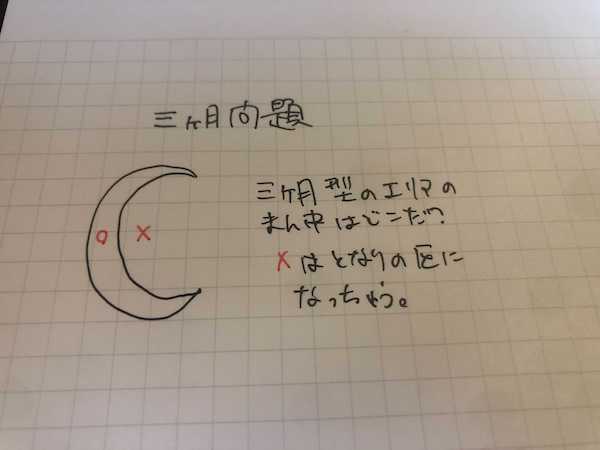 三ヶ月問題
三ヶ月型のエリアの
まん中はどこだ?
○
×
×はとなりの区に
なっちゃう。